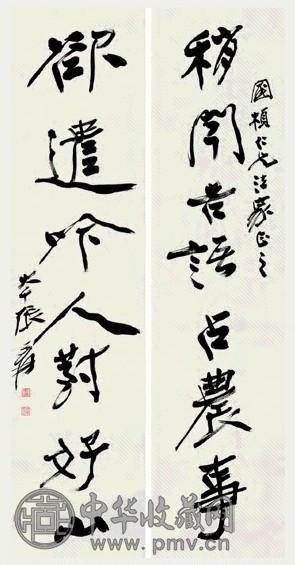 國楨仁兄法家正之
稍聞吉語占農事
欲遣吟人對好山
大千張爰
中华收藏网
www.pmv.cn